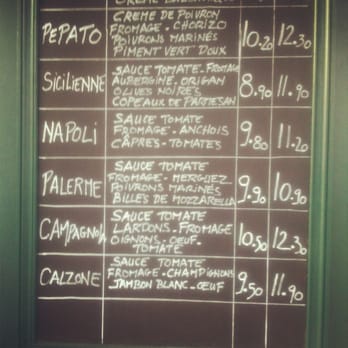 CRÈME
PEPATO
CREME DE POIVRON
FROMAGE - CHORIZO
POIVRONS MARINÉS
PIMENT VERT DOUX
10.20 12.30
SICILIENNE
SAUCE TOMATE - FROMAGE
AUBERGINE - ORIGAN
OLIVES NOIRES
COPEAUX DE PARMESAN
8.90 11.90
NAPOLI
SAUCE TOMATE
FROMAGE - ANCHOIS
CÂPRES - TOMATES
9.80 11.20
PALERME
SAUCE TOMATE
FROMAGE - MERGUEZ
POIVRONS MARINÉS
BILLES DE MOZZARELLA
9.90 10.90
CAMPAGNOLA
SAUCE TOMATE
LARDONS - FROMAGE
OIGNONS - OEUF
TOMATE
10.50 12.30
CALZONE
SAUCE TOMATE
FROMAGE - CHAMPIGNONS
JAMBON BLANC - OEUF
9.50 11.90